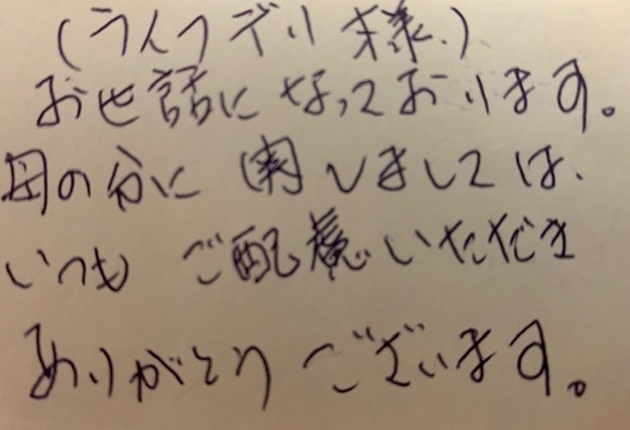 (ライフデリ様.)
お世話になっております。
母の分に関しましては、
いつもご配慮いただき
ありがとうございます。